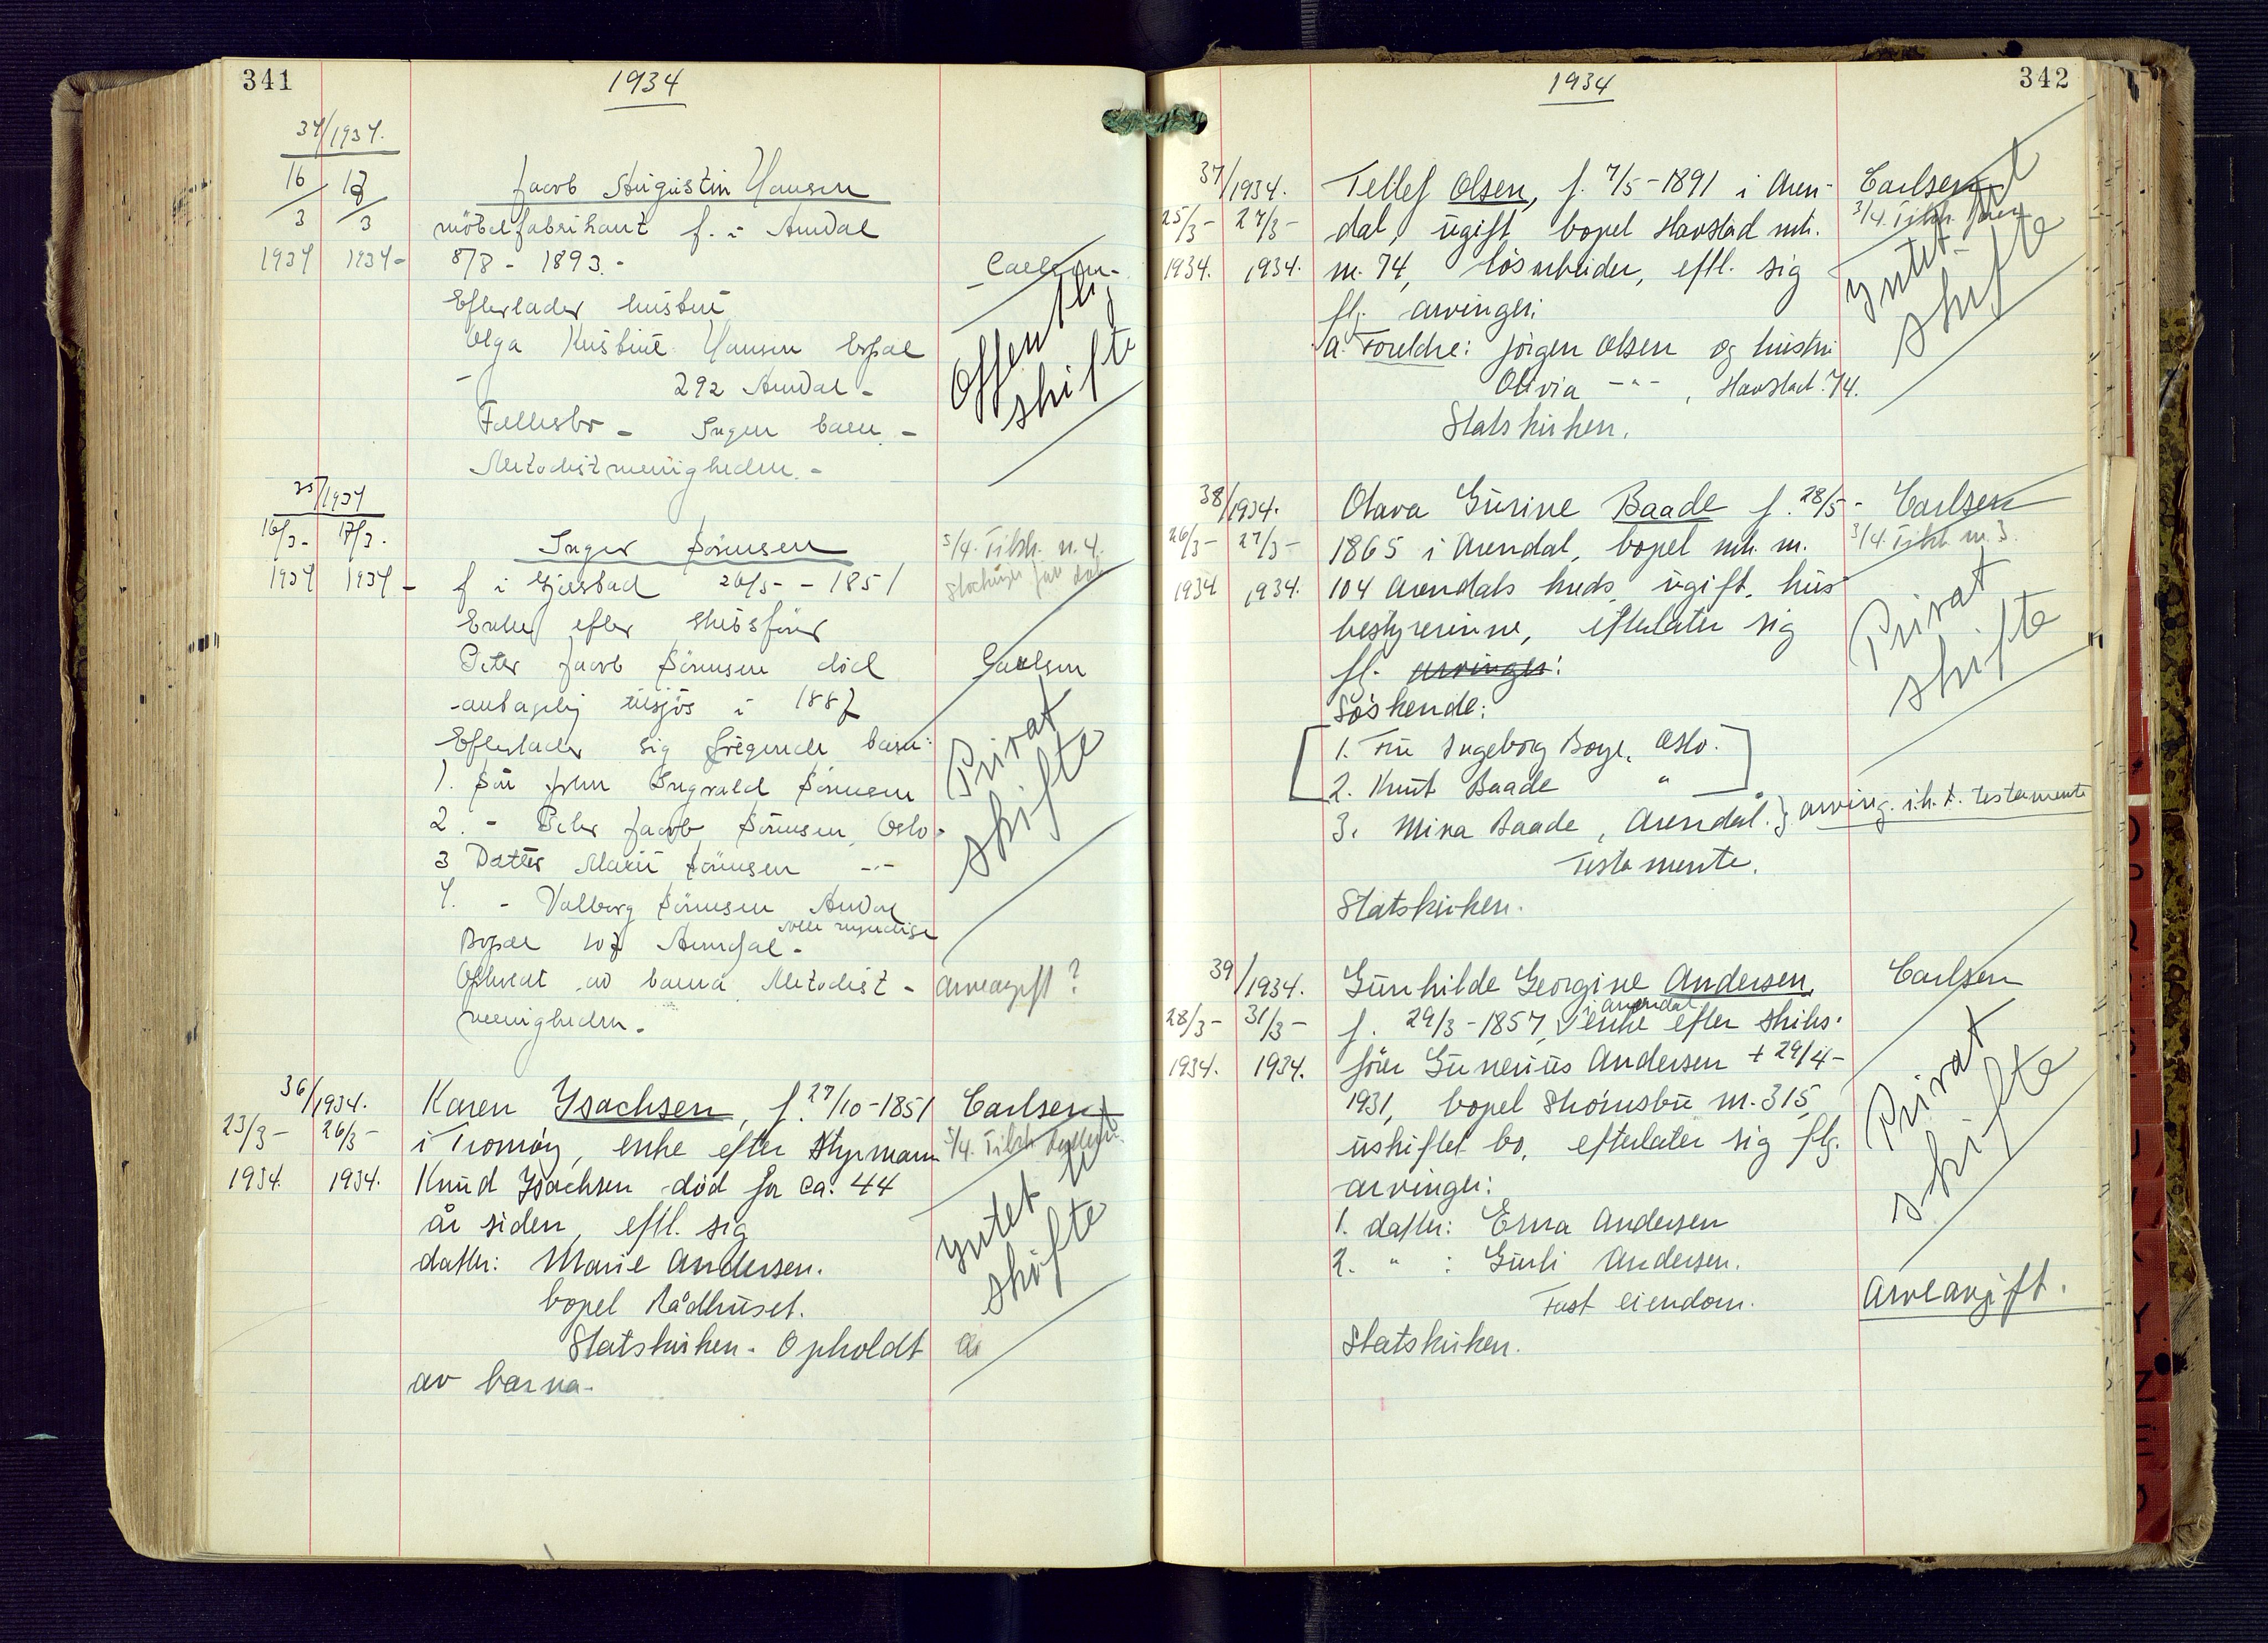 341
1934
34/1934.
16/3 17/3
1934 1934-
Jacob Augustin Hansen
möbelfabrikant f. i Arendal
8/8 - 1893.-
Carlsen.-
Efterlader hustru
Olga Kristine Hansen bopæl
292 Arendal -
Offentlig
skifte
Fællesbo - Ingen barn. -
Metodistmenigheden. -
35/1934
16/3- 17/3.
1934 1934-
Inger Sörensen
5/4. Tilsk. n. 4.
f i Gjerstad 26/5 - 1851
Enke efter skibsförer
Peter Jacob Sörensen död
Carlsen
antagelig tilsjös i 1887
Efterlader sig fölgende barn:
1. Sön John Ingvald Sörensen
2. - Peter Jacob Sörensen, Oslo-
3 Datter Marie Sörensen -"-
4. - Valborg Sörensen Arendal
Alle myndige
Privat
skifte
Bopæl 107 Arendal -
Opholdt av barna Metodist -
menigheden.
arveavgift?
36/1934.
23/3- 26/3-
1934. 1934.
Karen Isachsen, f. 27/10-1851
Carlsen
i Tromöy, enke efter styrmann
Knud Isachsen död for ca. 44
år siden, eftl. sig
datter: Marie Andersen.
bopel Rådhuset.
Statskirken. Opholdt
av barna.
Intet
skifte
342
1934
37/1934.
25/3- 27/3-
1934. 1934.
Tellef Olsen, f. 7/5-1891 i Aren-
Carlsen
dal, ugift bopel Havstad mtr.
m. 74, lösarbeider, eftl. sig
flg. arvinger:
a. Foreldre: Jörgen Olsen og hustru
Olivia -"-, Havstad 74.
Statskirken.
Intet
skifte
38/1934.
26/3- 27/3-
1934 1934.
Olava Gurine Baade f. 28/5-
Carlsen
1865 i Arendal, bopel mtr. m.
3/4. Tilsk. m 3.
104 Arendals hreds, ugift, hus
bestyrerinne, efterlater sig
flg. arvinger:
Söskende:
1. Fru Ingeborg Boye, Oslo.
2. Knut Baade "
3. Mina Baade, Arendal. } arving. i.h.t. testamente
Testamente.
Statskirken.
Privat
skifte
39/1934.
28/3- 31/3-
1934. 1934.
Gunhilde Georgine Andersen,
Carlsen
i Arendal
f. 29/3-1857, enke efter skibs-
förer Gunerius Andersen + 29/4-
1931, bopel Skörnsbu m. 315,
uskiftet bo, efterlater sig flg.
arvinger:
1. datter: Erna Andersen
2. " : Gurli Andersen.
Fast eiendom.
Statskirken.
Privat
skifte
Arveavgift.